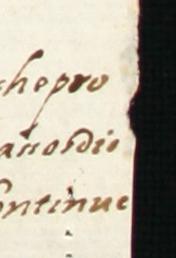 chepro
accordii
ontinue